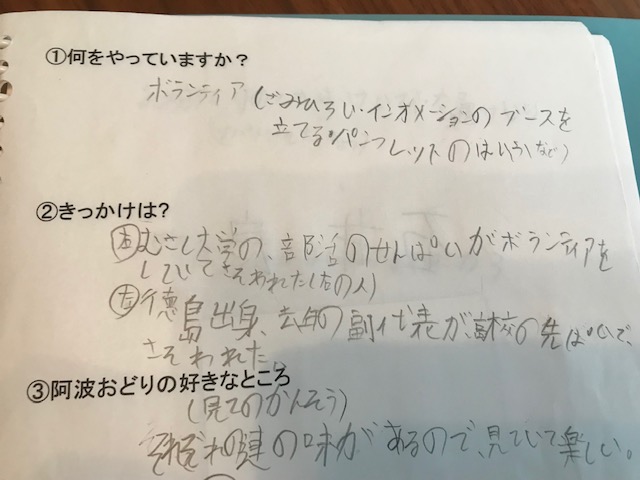 ①何をやっていますか？
ボランティア(ごみひろい・インオメーションのブースを
立てる・パンフレットのはいふなど)
②きっかけは?
右むさし大学の、部活のせんぱいがボランティアを
していてさそわれた(右の人)
左徳島出身、去年の副代表が、高校の先ぱいで、
さそわれた。
③阿波おどりの好きなところ
(見てのかんそう)
それぞれの連の味があるので、見ていて楽しい。